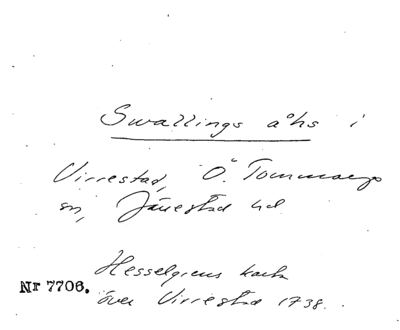 Swallings åhs i
Virrestad, Ö. Tommarp
sn, Järrestad hd
Hesselgrens karta
Nr 7706.
över Virrestad 1738.